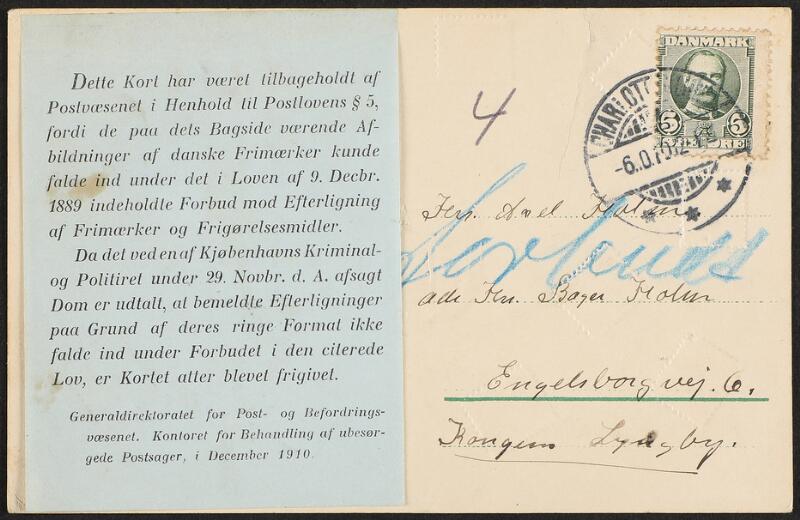 Dette Kort har været tilbageholdt af
Postvæsenet i Henhold til Postlovens § 5,
fordi de paa dets Bagside værende Af-
bildninger af danske Frimærker kunde
falde ind under det i Loven af 9. Decbr.
1889 indeholdte Forbud mod Efterligning
af Frimærker og Frigørelsesmidler.
Da det ved en af Kjøbenhavns Kriminal-
og Politiret under 29. Novbr. d. A. afsagt
Dom er udtalt, at bemeldte Efterligninger
paa Grund af deres ringe Format ikke
falde ind under Forbudet i den citerede
Lov, er Kortet atter blevet frigivet.
Generaldirektoratet for Post- og Befordrings-
væsenet. Kontoret for Behandling af ubesør-
gede Postsager, i December 1910.
4
DANMARK
5 5
ØRE
Hrn. Axel Holm
adr. Hrn. Bager Holm
Engelsborgvej. 6.
Kongens Lyngby.